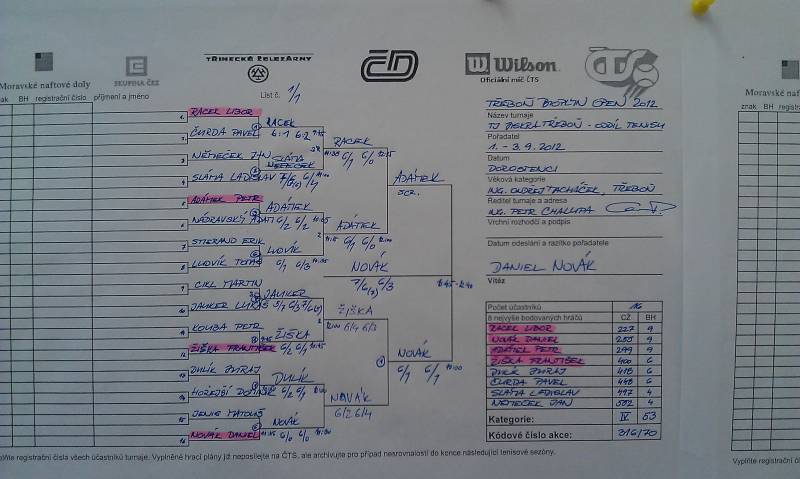 Moravské naftové doly
SKUPINA ČEZ
TŘINECKÉ ŽELEZÁRNY
ČD
Wilson
Oficiální míč ČTS
ČTS
List č. 1/1
znak BH registrační číslo příjmení a jméno
1. RACEK LIBOR
2. ČURDA PAVEL
3. NĚMEČEK JAN
4. SLÁMA LADISLAV
5. ADÁMEK PETR
6.
7. STIERAND ERIK
8. LUDVÍK
9. CIKL MARTIN
10. LUKÁŠ
11. KOUBA PETR
12. ŽIŠKA FRANTIŠEK
13. DULÍK JURAJ
14. HOŘEJŠÍ DOMINIK
15.
16. NOVÁK DANIEL
RACEK
6:1 6:2
SLÁMA
ADÁMEK
6/2 6/2
LUDVÍK
6/1 6/3
ŽIŠKA
6/2 6/1
DULÍK
6/2 6/1
NOVÁK
6/0 6/0
RACEK
6/1 6/0
ADÁMEK
6/1 6/0
ŽIŠKA
6/4 6/3
NOVÁK
6/2 6/4
ADÁMEK
SCR.
NOVÁK
6/1 6/1
NOVÁK
6/3
TŘEBOŇ OPEN 2012
Název turnaje
TJ JISKRA TŘEBOŇ - ODDÍL TENISU
Pořadatel
1. - 3. 9. 2012
Datum
DOROSTENCI
Věková kategorie
ING. ONDŘEJ TŘEBOŇ
Ředitel turnaje a adresa
ING. PETR CHALUPA
Vrchní rozhodčí a podpis
Datum odeslání a razítko pořadatele
DANIEL NOVÁK
Vítěz
Počet účastníků 16
8 nejvýše bodovaných hráčů CŽ BH
RACEK LIBOR 227 9
NOVÁK DANIEL 255 9
ADÁMEK PETR 299 9
ŽIŠKA FRANTIŠEK 400 6
DULÍK JURAJ 418 6
ČURDA PAVEL 448 6
SLÁMA LADISLAV 497 4
NĚMEČEK JAN 502 4
Kategorie: IV 53
Kódové číslo akce: 316170
vyplňte registrační čísla všech účastníků turnaje. Vyplněné hrací plány již neposílejte na ČTS, ale archivujte pro případ nesrovnalostí do konce následující tenisové sezóny.
Moravské
znak BH registrační
Vyplňte registrační